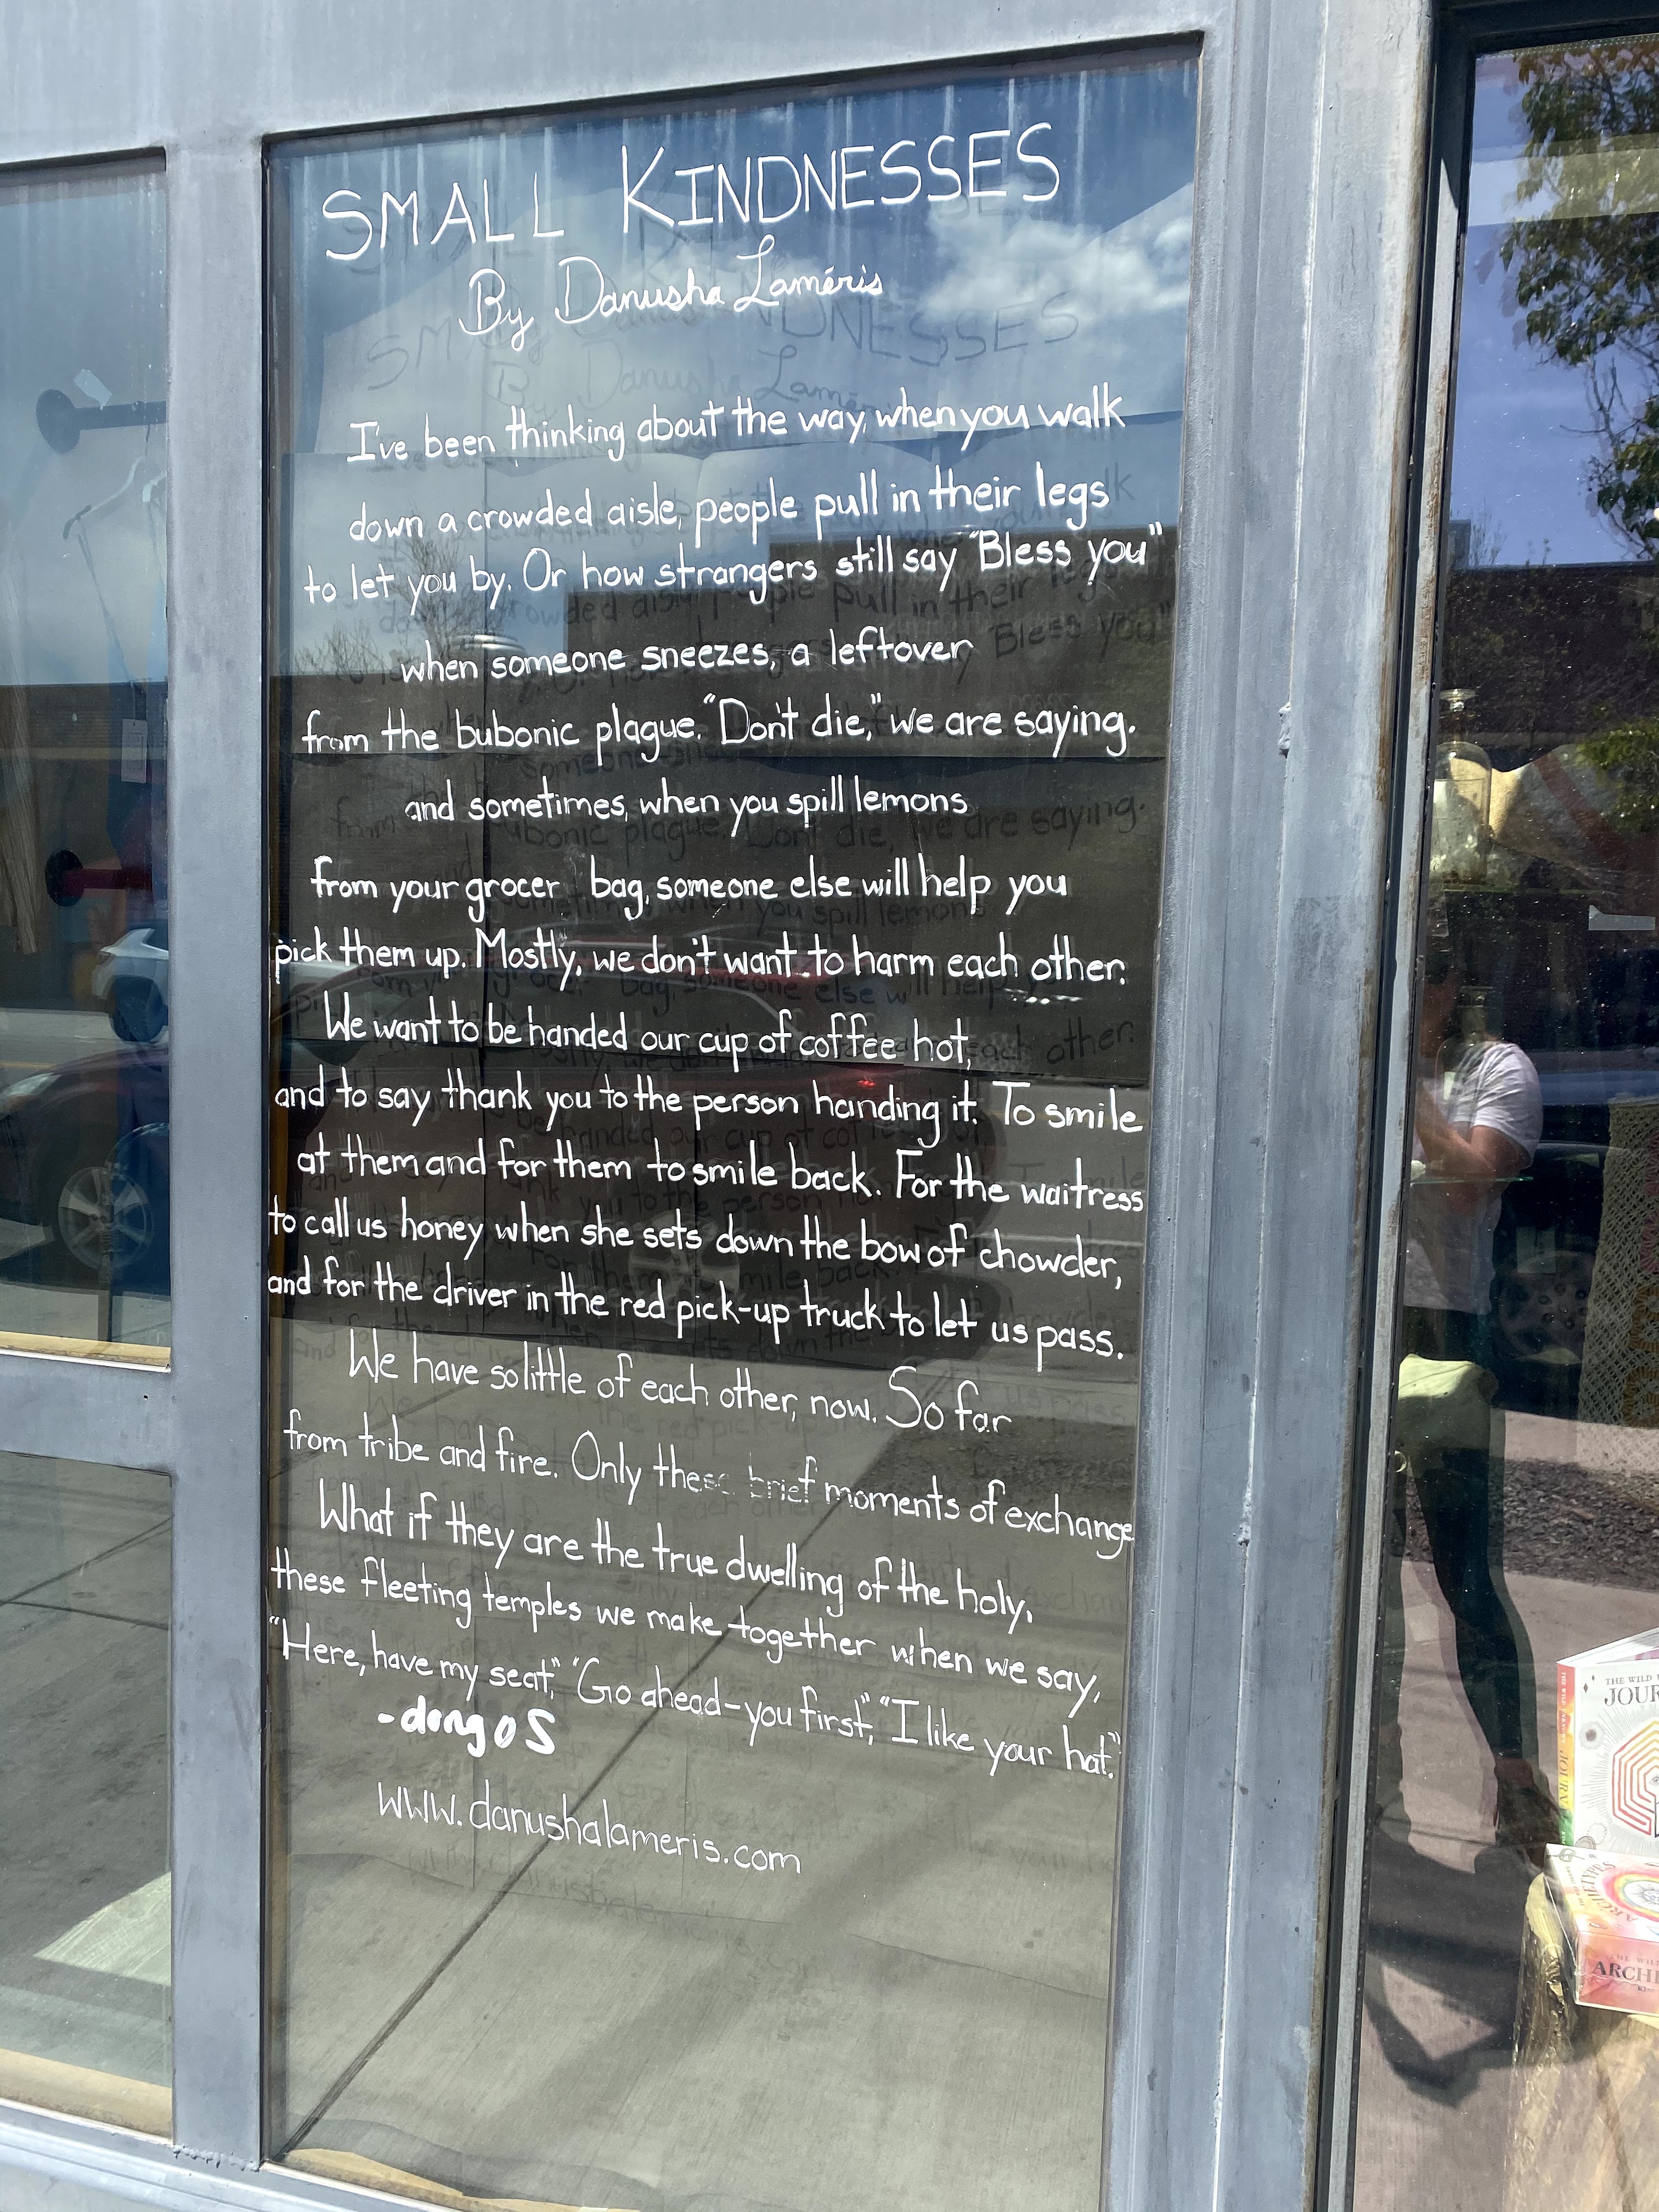 SMALL KINDNESSES
By Danusha Laméris
I've been thinking about the way, when you walk
down a crowded aisle, people pull in their legs
to let you by. Or how strangers still say "Bless you"
when someone sneezes, a leftover
from the bubonic plague. "Don't die," we are saying.
and sometimes, when you spill lemons
from your grocer bag, someone else will help you
pick them up. Mostly, we don't want to harm each other.
We want to be handed our cup of coffee hot,
and to say thank you to the person handing it. To smile
at them and for them to smile back. For the waitress
to call us honey when she sets down the bow of chowder,
and for the driver in the red pick-up truck to let us pass.
We have so little of each other, now. So far
from tribe and fire. Only these brief moments of exchange
What if they are the true dwelling of the holy,
these fleeting temples we make together when we say,
"Here, have my seat," "Go ahead-you first," "I like your hat."
-dingos
www.danushalameris.com
THE WILD
JOUR
ARCHE